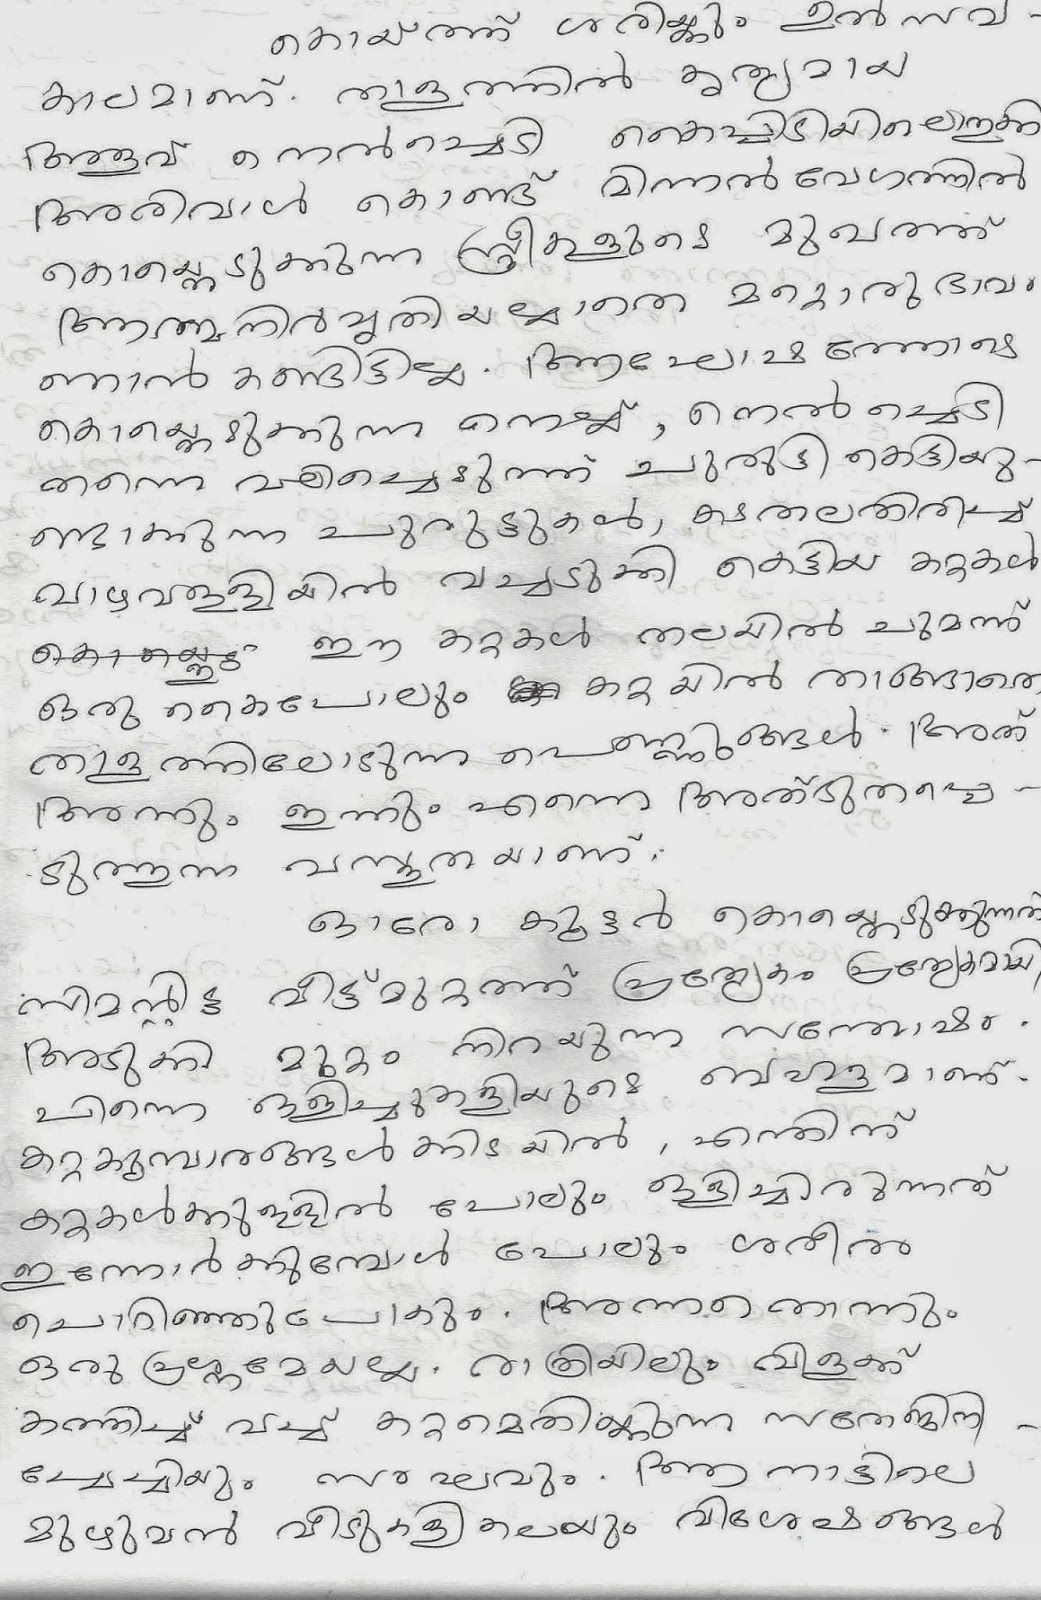 കൊയ്ത്ത് ശരിയ്ക്കും ഉൽസവ-
കാലമാണ്. താളത്തിൽ കൃത്യമായ
അളവ് നെൽച്ചെടി കൈപ്പിടിയിലൊതുക്കി
അരിവാൾ കൊണ്ട് മിന്നൽ വേഗത്തിൽ
കൊയ്തെടുക്കുന്ന സ്ത്രീകളുടെ മുഖത്ത്
ആത്മനിർവൃതിയല്ലാതെ മറ്റൊരു ഭാവം
ഞാൻ കണ്ടിട്ടില്ല. ആഘോഷത്തോടെ
കൊയ്തെടുക്കുന്ന നെല്ല്, നെൽച്ചെടി
തന്നെ വലിച്ചെടുത്ത് ചുരുട്ടി കെട്ടിയു-
ണ്ടാക്കുന്ന ചുരുട്ടുകൾ, കടതലതിരിച്ച്
വാഴവള്ളിയിൽ വച്ചടുക്കി കെട്ടിയ കറ്റകൾ
ഈ കറ്റകൾ തലയിൽ ചുമന്ന്
ഒരു കൈപോലും കറ്റയിൽ താങ്ങാതെ
താളത്തിലോടുന്ന പെണ്ണുങ്ങൾ. അത്
അന്നും ഇന്നും എന്നെ അത്ഭുതപ്പെ-
ടുത്തുന്ന വസ്തുതയാണ്.
ഓരോ കൂട്ടർ കൊയ്തെടുക്കുന്നത്
സിമന്റിട്ട വീട്ട്മുറ്റത്ത് പ്രത്യേകം പ്രത്യേകമായി
അടുക്കി മുറ്റം നിറയുന്ന സന്തോഷം.
പിന്നെ ഒളിച്ചുകളിയുടെ ബഹളമാണ്.
കറ്റകൂമ്പാരങ്ങൾക്കിടയിൽ, എന്തിന്
കറ്റകൾക്കുള്ളിൽ പോലും ഒളിച്ചിരുന്നത്
ഇന്നോർക്കുമ്പോൾ പോലും ശരീരം
ചൊറിഞ്ഞുപോകും. അന്നതൊന്നും
ഒരു പ്രശ്നമേയല്ല. രാത്രിയിലും വിളക്ക്
കത്തിച്ച് വച്ച് കറ്റമെതിയ്ക്കുന്ന
ച്ചേച്ചിയും സംഘവും. ആ നാട്ടിലെ
മുഴുവൻ വീടുകളിലെയും വിശേഷങ്ങൾ